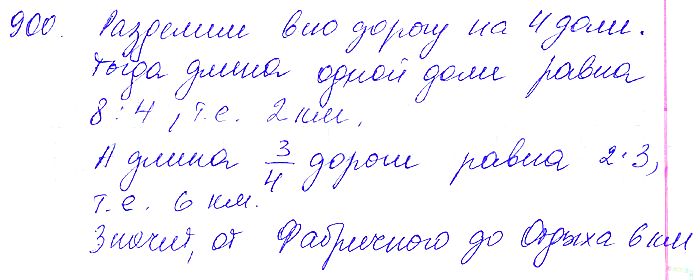 900. Разделим всю дорогу на 4 доли.
Тогда длина одной доли равна
8 : 4, т.е. 2 км.
А длина 3/4 дороги равна 2·3,
т.е. 6 км.
Значит, от Фабричного до Отдыха 6 км